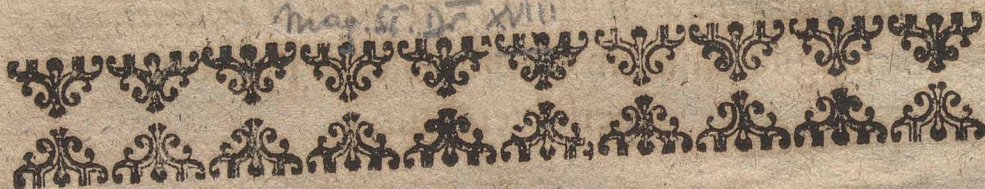 Mag. St. Dr. XVIII